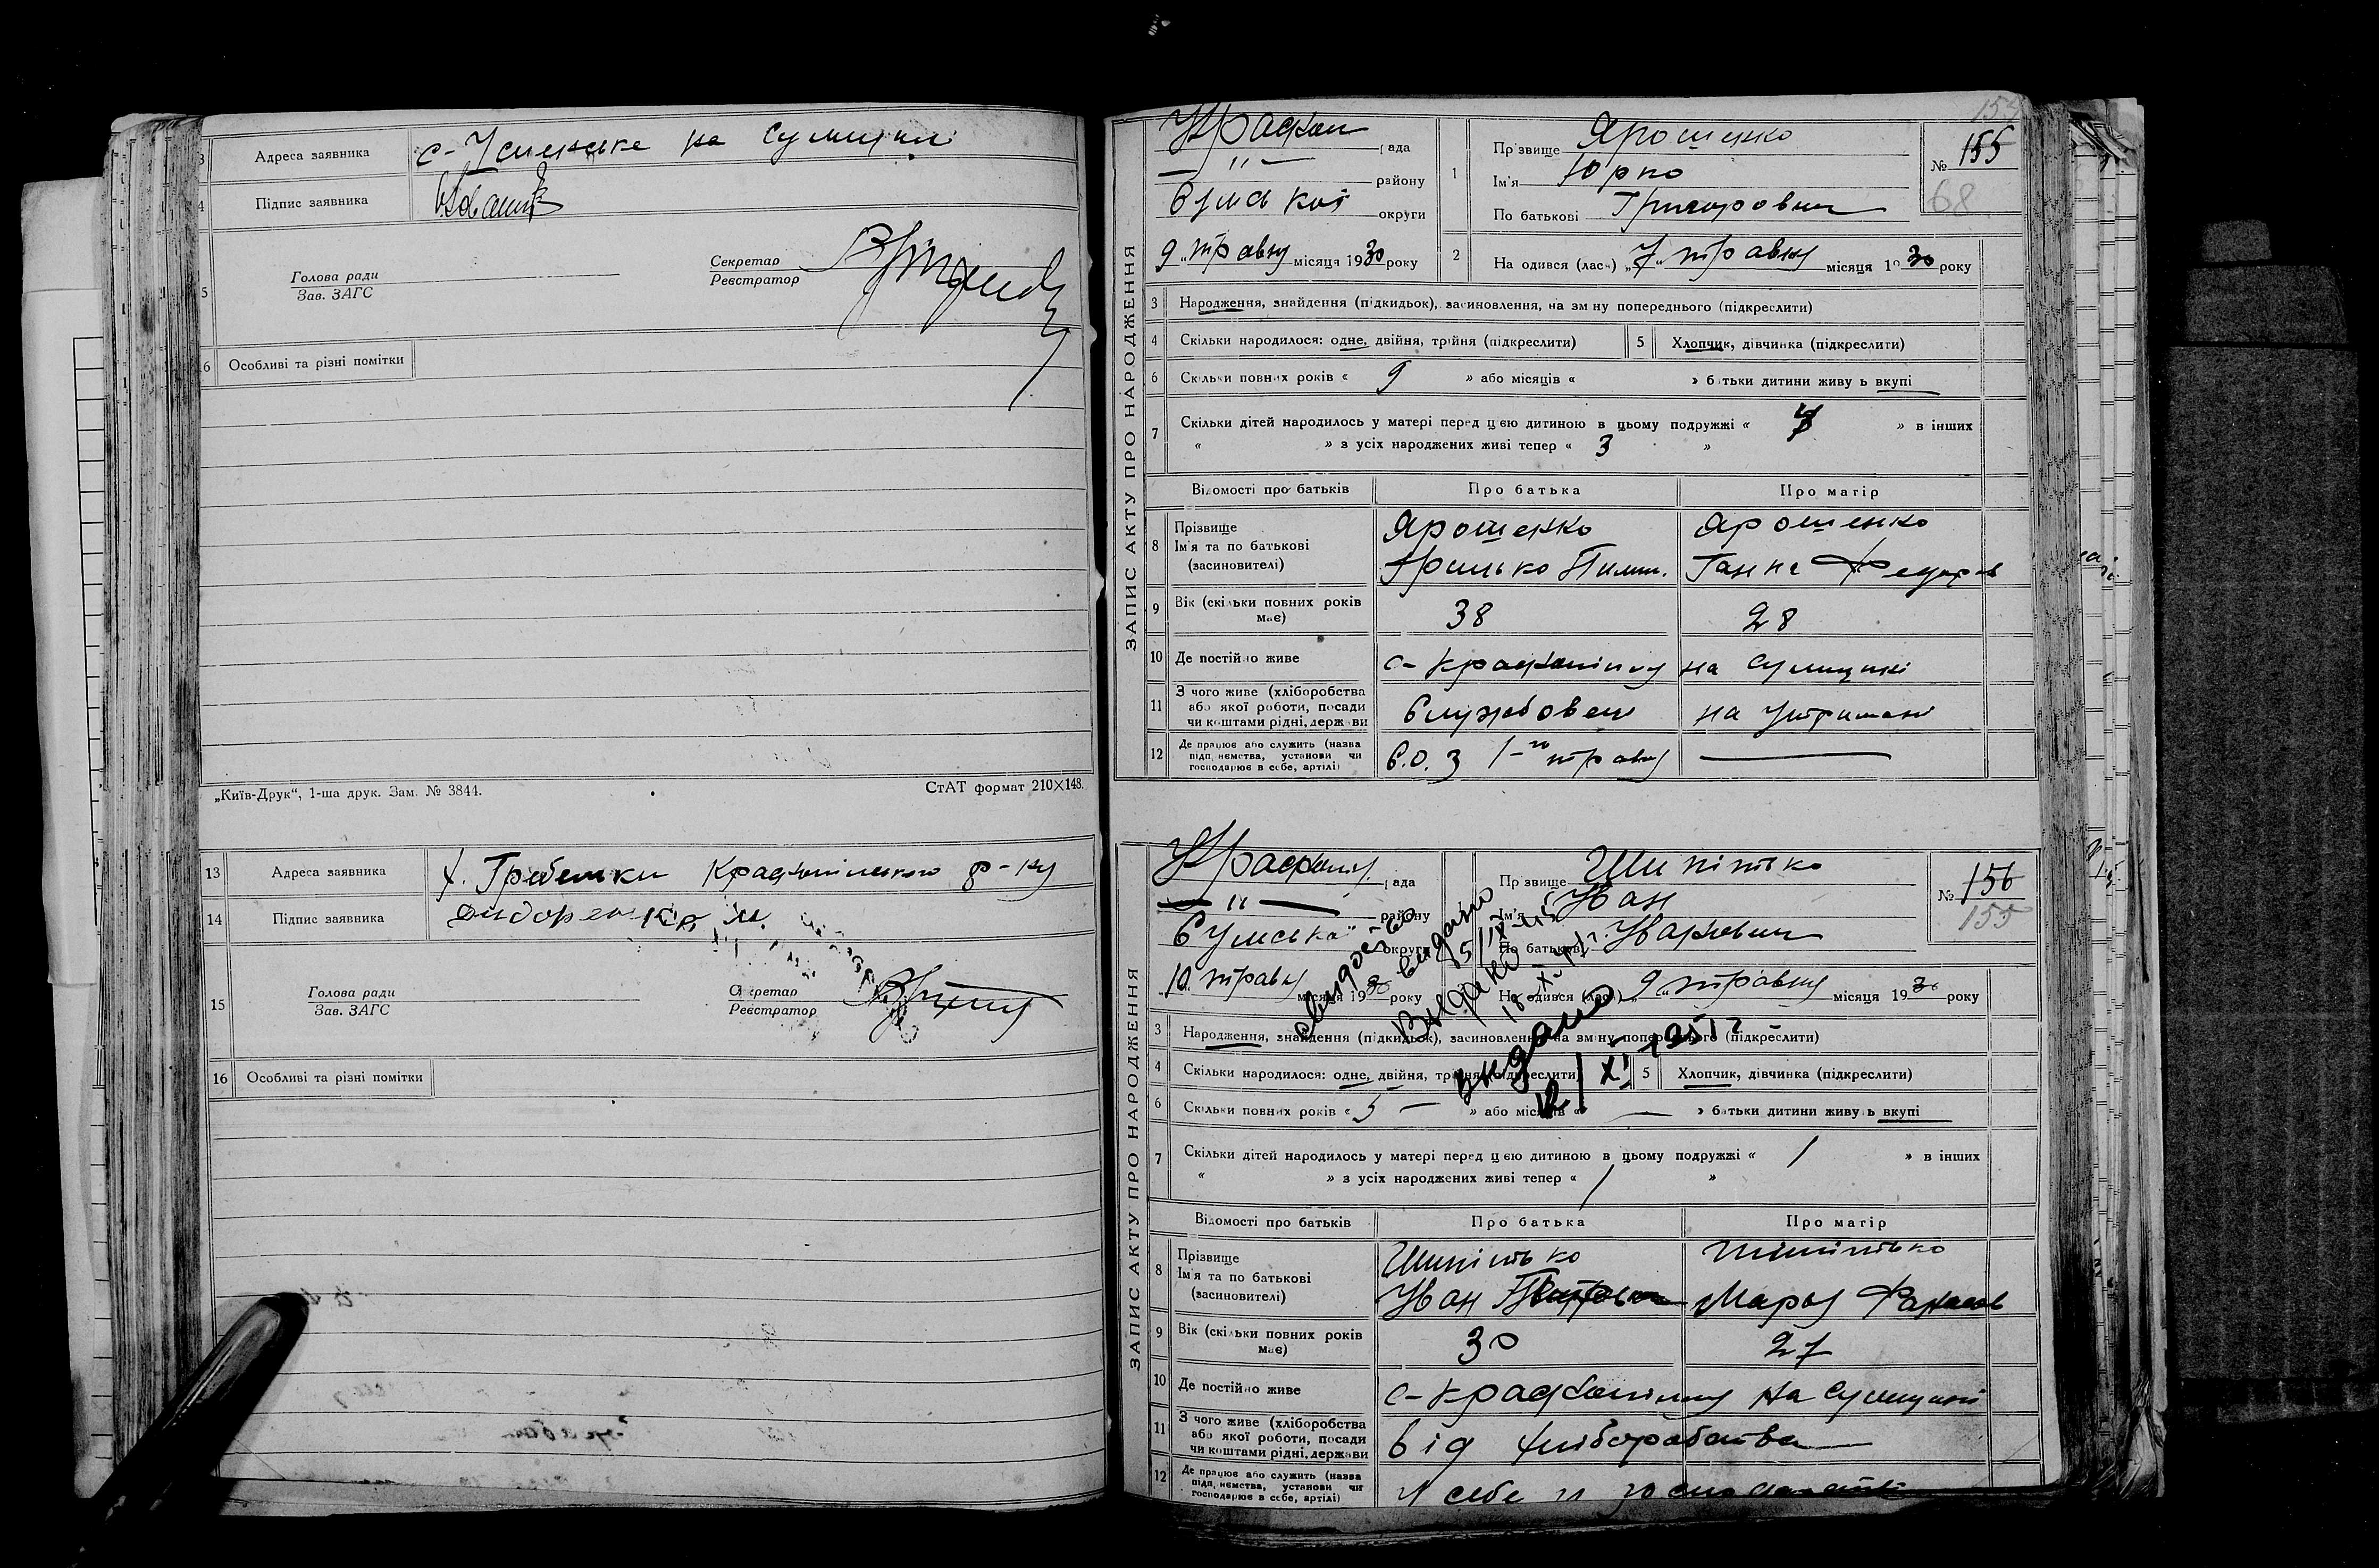 13 Адреса заявника с-Успенське на Сумщині
14 Підпис заявника
15 Голова ради
Зав. ЗАГС
Секретар
Реєстратор
16 Особливі та різні помітки
„Київ-Друк“, 1-ша друк. Зам. № 3844. СтАТ формат 210×148.
13 Адреса заявника х. Гребельки Краснопільського р-ну
14 Підпис заявника
15 Голова ради
Зав. ЗАГС
Секретар
Реєстратор
16 Особливі та різні помітки
154
ЗАПИС АКТУ ПРО НАРОДЖЕННЯ
Краснопі рада
— " — району
Сумської округи
9 „ травня місяця 1930 року
1 Прізвище Ярошенко
Ім'я Юрко
По батькові Григорович
№ 155
68
2 Народився (лась) „7„ травня місяця 1930 року
3 Народження, знайдення (підкидьок), засиновлення, на зміну попереднього (підкреслити)
4 Скільки народилося: одне, двійня, трійня (підкреслити) 5 Хлопчик, дівчинка (підкреслити)
6 Скільки повних років « 9 » або місяців « » батьки дитини живуть вкупі
7 Скільки дітей народилось у матері перед цією дитиною в цьому подружжі « » в інших
« » з усіх народжених живі тепер « 3 »
Відомості про батьків Про батька Про матір
8 Прізвище Ярошенко Ярошенко
Ім'я та по батькові
(засиновителі) Грицько Пилип. Ганна Федоров
9 Вік (скільки повних років має) 38 28
10 Де постійно живе с-Краснопілля на Сумщині
11 З чого живе (хліборобства
або якої роботи, посади
чи коштами рідні, держави Службовець на утриманні
12 Де працює або служить (назва
підприємства, установи чи
господарює в себе, артілі) С.О.З 1-го травня —
ЗАПИС АКТУ ПРО НАРОДЖЕННЯ
Краснопіл. рада
— " — району
Сумська округи
10 „ травня місяця 1930 року
Прізвище Шипітько
Ім'я Іван
По батькові Іванович
№ 156
155
Народився (лась) „9„ травня місяця 1930 року
свидоство видано
5/IX-45
Видано
видано
12/XI-1951 г
3 Народження, знайдення (підкидьок), засиновлення, на зміну попереднього (підкреслити)
4 Скільки народилося: одне, двійня, трійня (підкреслити) 5 Хлопчик, дівчинка (підкреслити)
6 Скільки повних років « 5 — » або місяців « — » батьки дитини живуть вкупі
7 Скільки дітей народилось у матері перед цією дитиною в цьому подружжі « 1 » в інших
« » з усіх народжених живі тепер « 1 »
Відомості про батьків Про батька Про матір
8 Прізвище Шипітько Шипітько
Ім'я та по батькові
(засиновителі) Іван Марья Фанасов
9 Вік (скільки повних років має) 30 27
10 Де постійно живе с-Краснопілля на Сумщині
11 З чого живе (хліборобства
або якої роботи, посади
чи коштами рідні, держави від хліборобства
12 Де працює або служить (назва
підприємства, установи чи
господарює в себе, артілі) у себе в господарстві